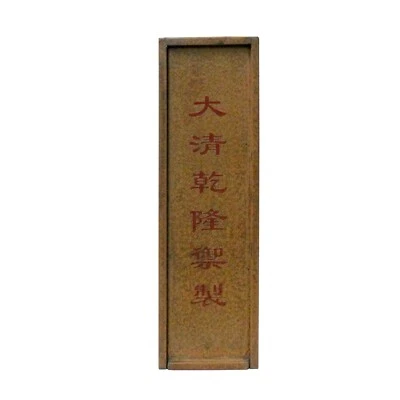 大清乾隆禦製